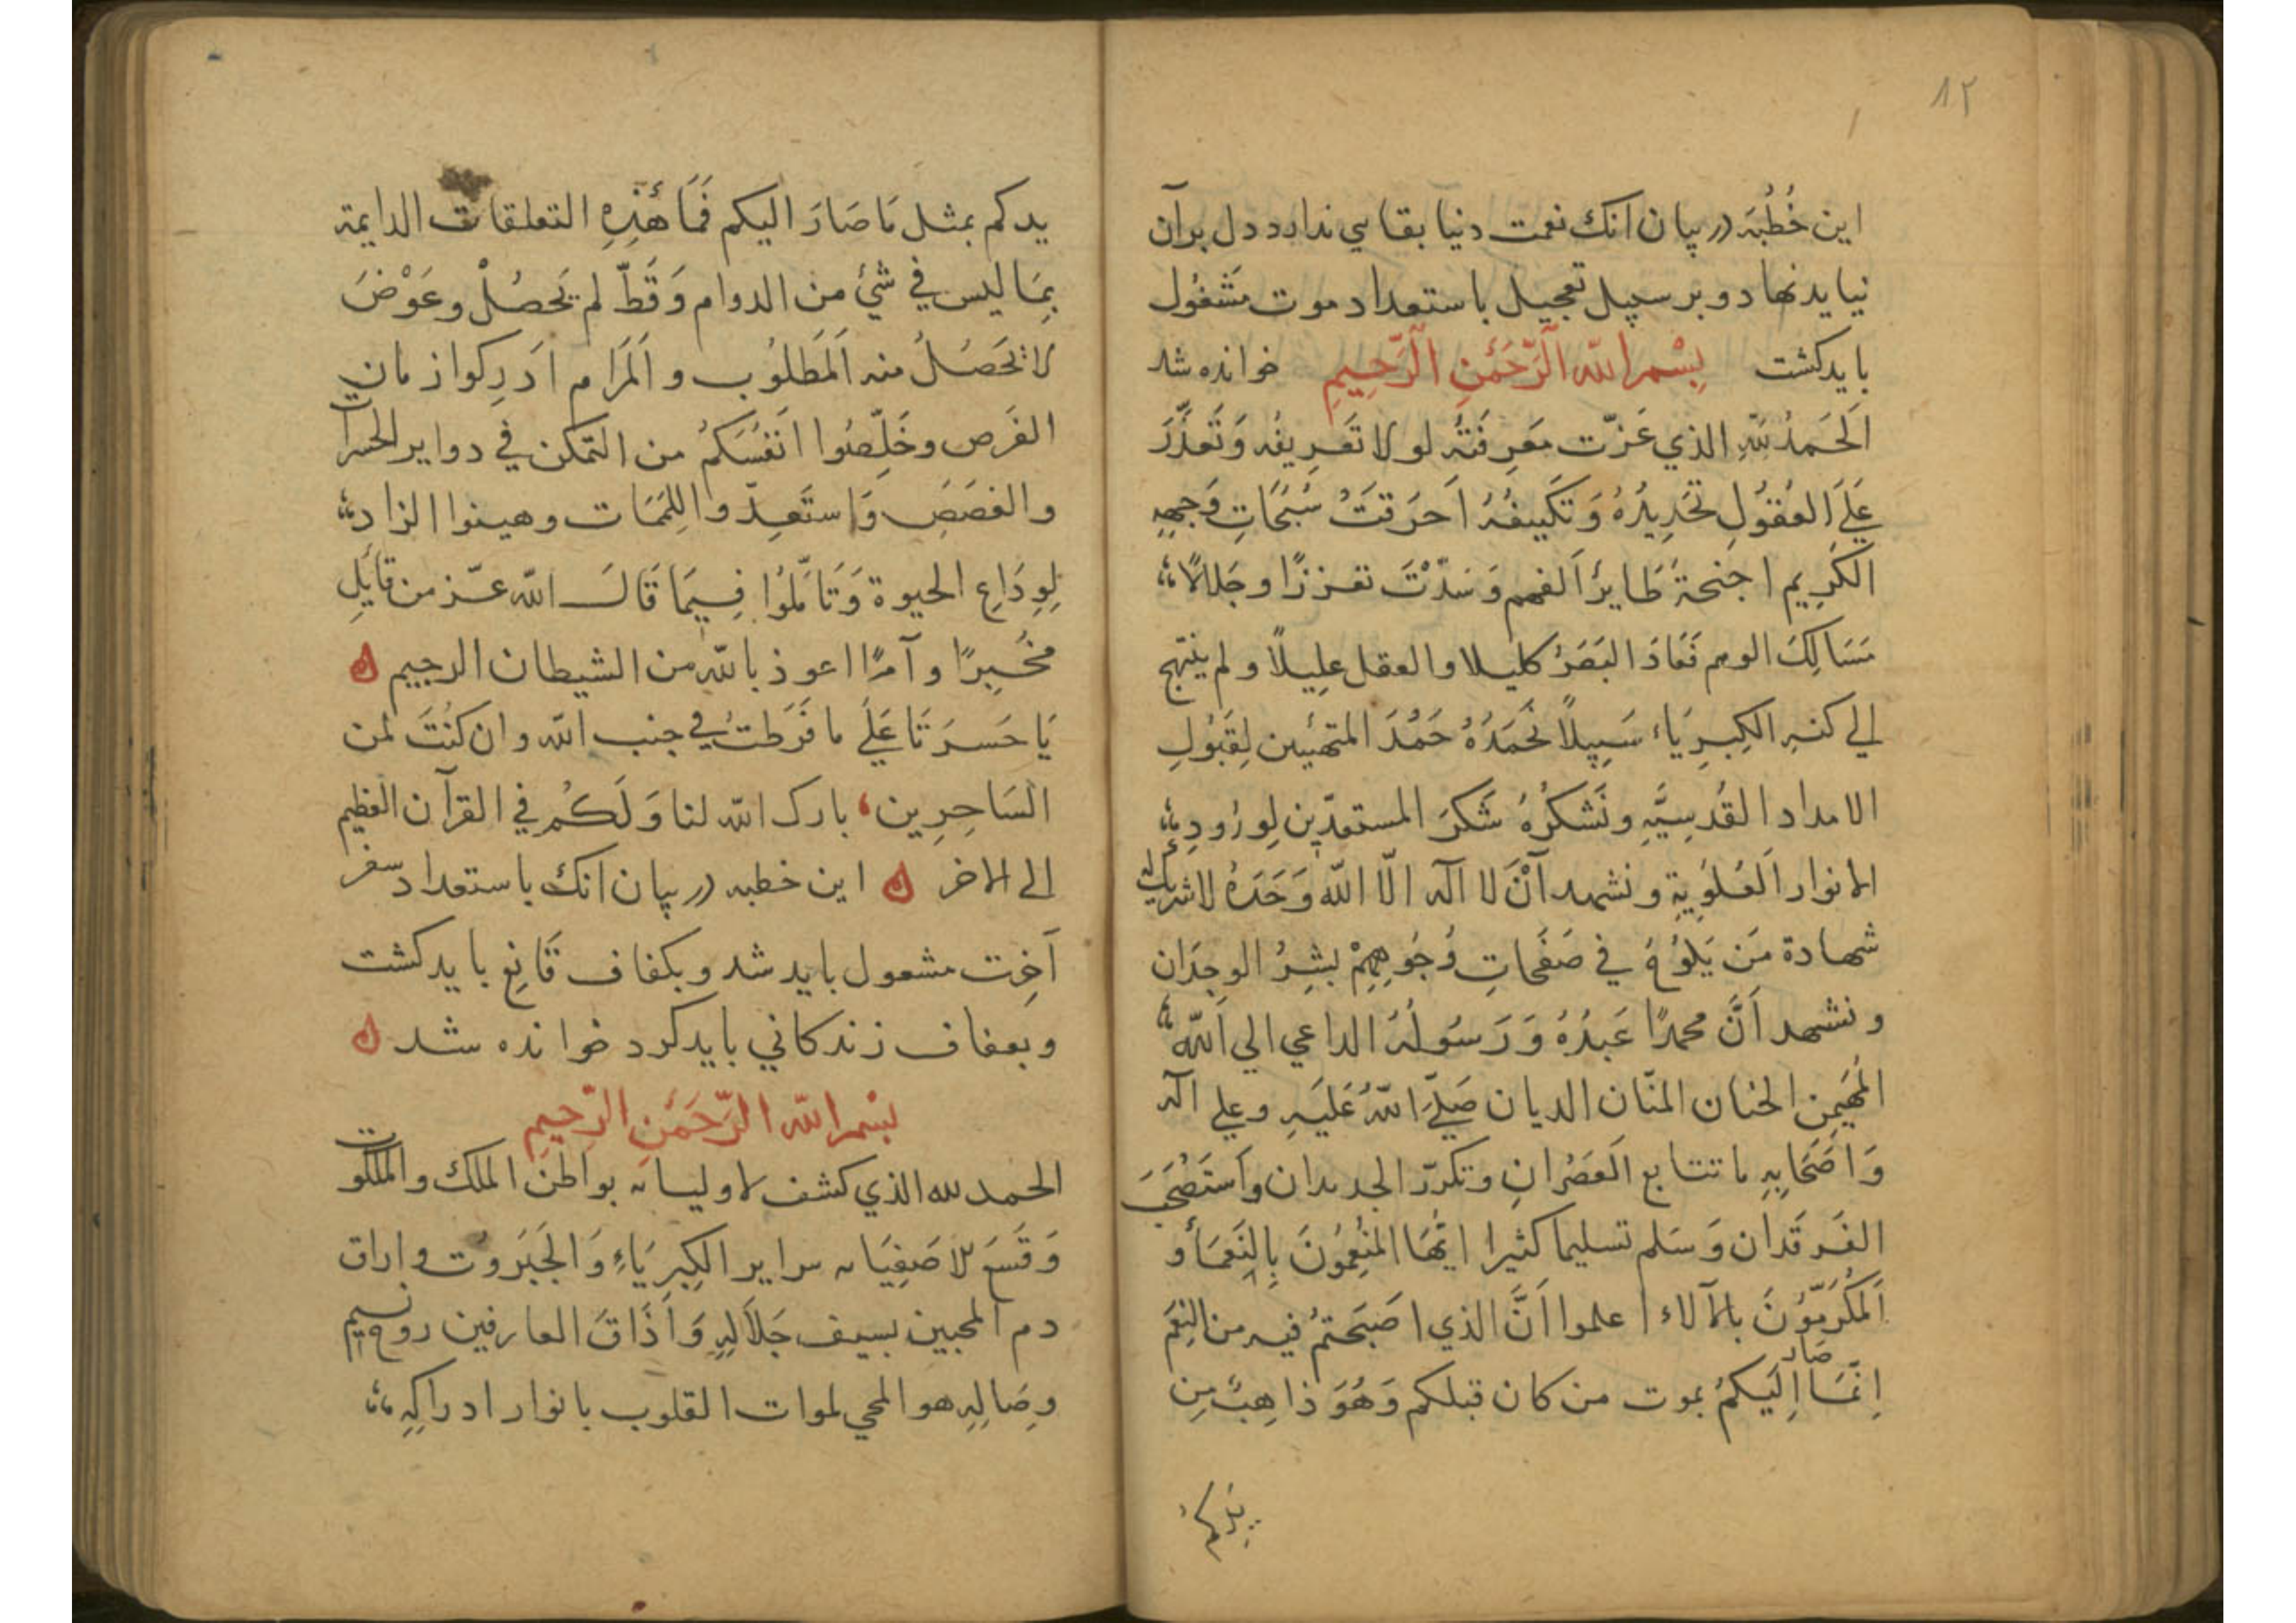 ۸۲
این خُطْبَه در بیان انك نعمت دنیا بقایی ندارد دل برآن
نیاید نهاد و بر سبیل تعجیل باستعداد موت مَشغُول
باید کشت بِسْمِ اللّه الرَّحْمَنِ الرَّحِيمِ خوانده شد
اَلحَمدُ لِلّهِ الذي عَزّت مَعرِفَتُه لولا تَعَرِيفُه وَتَعَذَّرَ
عَلَى العُقُولِ تَحَدِيدُهُ وَتَكَيِيفُهُ اَحرَقَتَ سُبُحَاتِ وَجهِهِ
الكَرِيمِ اجنحةُ طَايِرُ الفهم وَسَدّتَ تعززًا وجَلالًا
مَسَالِكَ الوهم فَعَادَ البَصَرُ كليلا والعقل عَلِيلاً ولم ينتهج
الي كنهِ الكِبِرِيَاء سَبِيلاً نَحَمَدُهُ حَمْدَ المتهيئين لِقَبُولِ
الامداد القُدسِيَّهِ ونَشكُرُهُ شَكرَ المستعدّين لِوِرُودِ
الانوار العُلوِيةِ ونشهد اَنْ لا اله الّا اللّه وَحَدَهُ لاشريك له
شهادة مَن يَلُوحُ في صَفَحاتِ وُجُوهِهِمْ بشِرُ الوجدَان
ونشهد اَنَّ محمدًا عَبدُهُ وَرَسُولُهُ الداعي الي اللّه
المُهَيمِن الحنان المنّان الديان صَلّي اللّهُ عَلَيَهِ وعلي اله
وَاَصَحَابِهِ ما تتابع العَصَرانِ وتكرّر الجديدان واَستَصْحَبَ
الفَرقَدان وَسَلم تسليما كثيرا ايّهَا المنُعِمُونَ بِالنَعَمَاء و
اَلمَكُرَمّوُنَ بالآلاء اعلموا اَنَّ الذي اصَبَحتمُ فيه من النِعَم
اِنّمَا صَارَ اِلَيكمُ بموت من كان قبلكم وَهُوَ ذاهِبٌ مِن
يدكم
يدكم بمثل مَا صَارَ اليكم فَمَا هَذِهِ التعلقات الدايمة
بِمَا ليس في شئ من الدوام وَقَطّ لم يَحصُلْ وعَوْضَ
لا تَحَصَلُ منه اَلمَطَلُوب والمَرَام اَدَرِكوا زمان
الفَرص وخَلِّصُوا انَفُسَكمُ من التمكن في دواير الحسرات
والغصَص وَاستَعِدّوا للِمَمَات وهينوا الزاد
لِوِدَاعِ الحيوة وَتَامّلُوا فِيمَا قَالَ اللّه عزّ من قَايِلِ
مخُبِرًا وآمرًا اعوذ باللّه من الشيطان الرجيم
يَا حَسرَتَا عَلَي ما فَرَطتُ في جنب اللّه وان كنُتَ لمن
السَاخِرِين، بارك اللّه لنا وَلَكُم في القرآن العظيم
الي الاخر این خطبه در بیان انك باستعداد سفر
آخِرت مشعول باید شد و بکفاف قَانِع باید کشت
وبعفاف زندکاني باید کرد خوانده شد
بسم اللّه الرَّحمَنِ الرّحيمِ
الحمد لله الذي كشف لاوليائه بواطن الملك والملكوت
وَقَسَمَ لاصَفِيَائه سراير الكِبرِيَاءِ وَالجَبَروُت واراق
دم المحبين بسيف جَلَالهِ وَاَذَاقَ العارفين روح نسيم
وِصَالِهِ هو المحي لموات القلوب بانوار ادراكِهِ